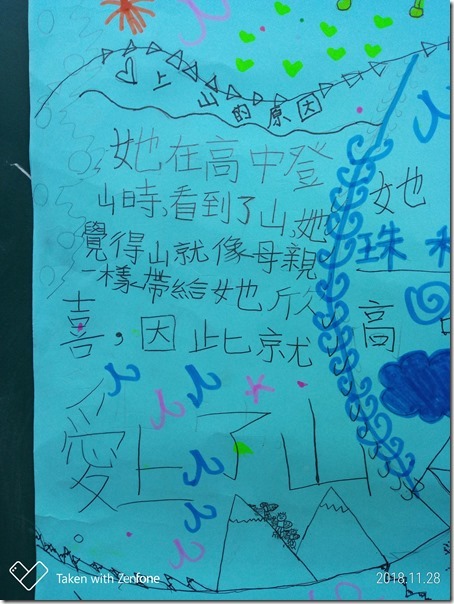 ♡上山的原因
她在高中登
山時,看到了山,她
覺得山就像母親
一樣帶給她欣
喜,因此就
愛上了山
她
珠
高
Taken with Zenfone
2018.11.28